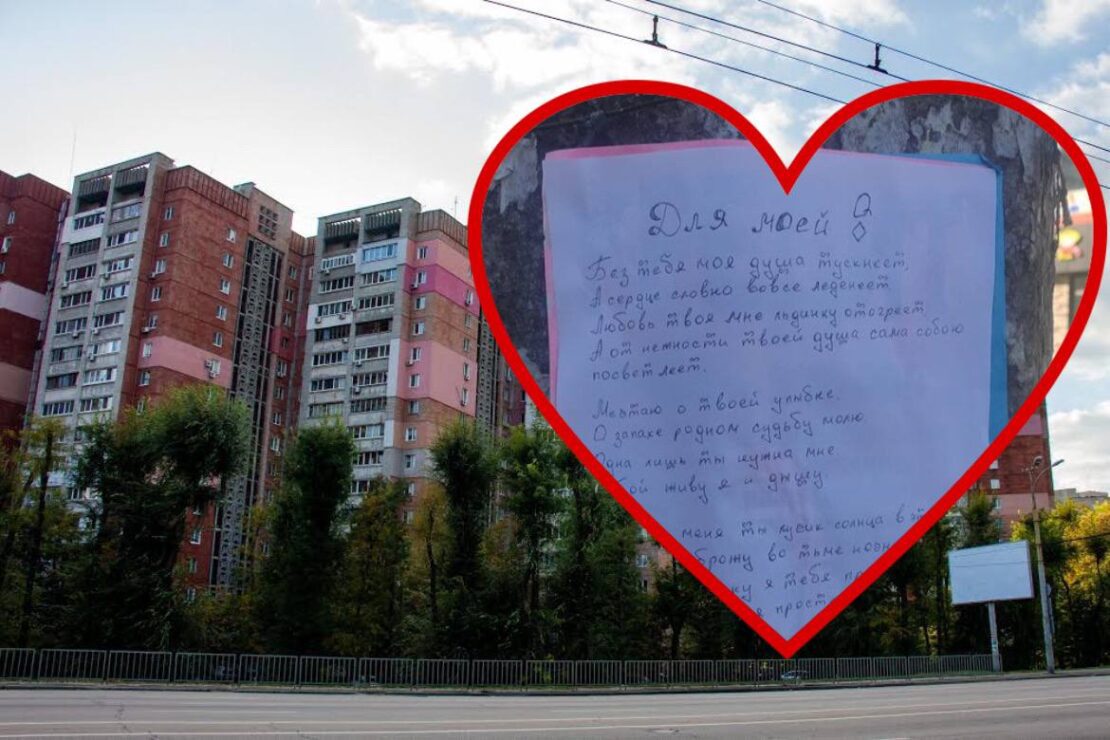 Для моей
Без тебя моя душа тускнеет,
А сердце словно вовсе леденеет
Любовь твоя мне льдинку отогреет
А от нежности твоей душа сама собою
посветлеет.
Мечтаю о твоей улыбке.
О запахе родном судьбу молю.
Одна лишь ты нужна мне
живу я и дышу.
меня ты лусик солнца в
во тьме
я тебя